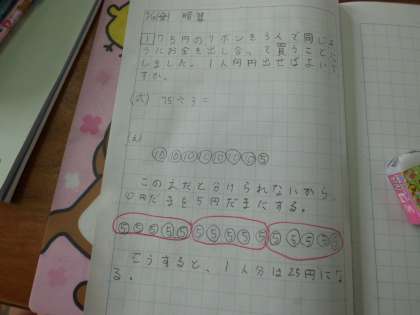 暗算
1 75円のリボンを3人で同じよ
うにお金を出しあって買うこと
しました。1人何円出せばよい
ですか。
(式) 75÷3=
(え)
⑩⑩⑩⑩⑩⑩⑩⑤
このままだと分けられないから
10円だまを5円だまにする。
⑤⑤⑤⑤⑤ ⑤⑤⑤⑤⑤ ⑤⑤⑤⑤⑤
そうすると、1人分は25円にな
る。